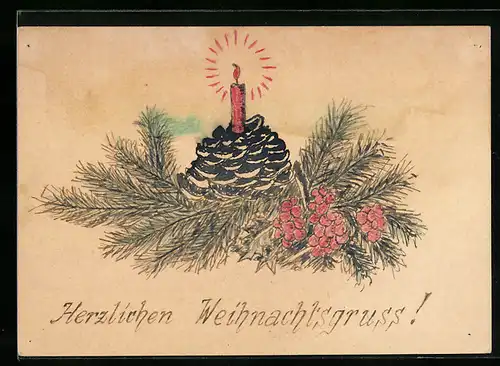 Herzlichen Weihnachtsgruss!